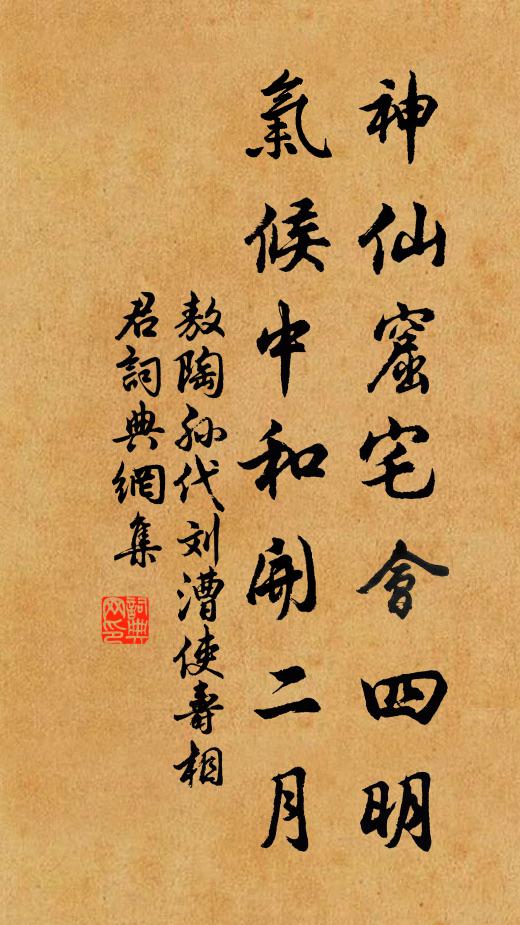 神仙窟宅會四明
氣候中和開二月
敖陶孙代刘漕使壽相
君詞典網集
詞典
网印